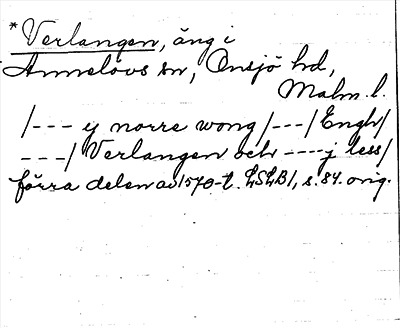 *Verlangen, äng i
Annelövs sn, Onsjö hd,
Malm. l.
/--- ij norre wong /---/ Engh/
---/ Verlangen och ----j less/
förra delen av 1570-t. LSLB1, s. 84. orig.